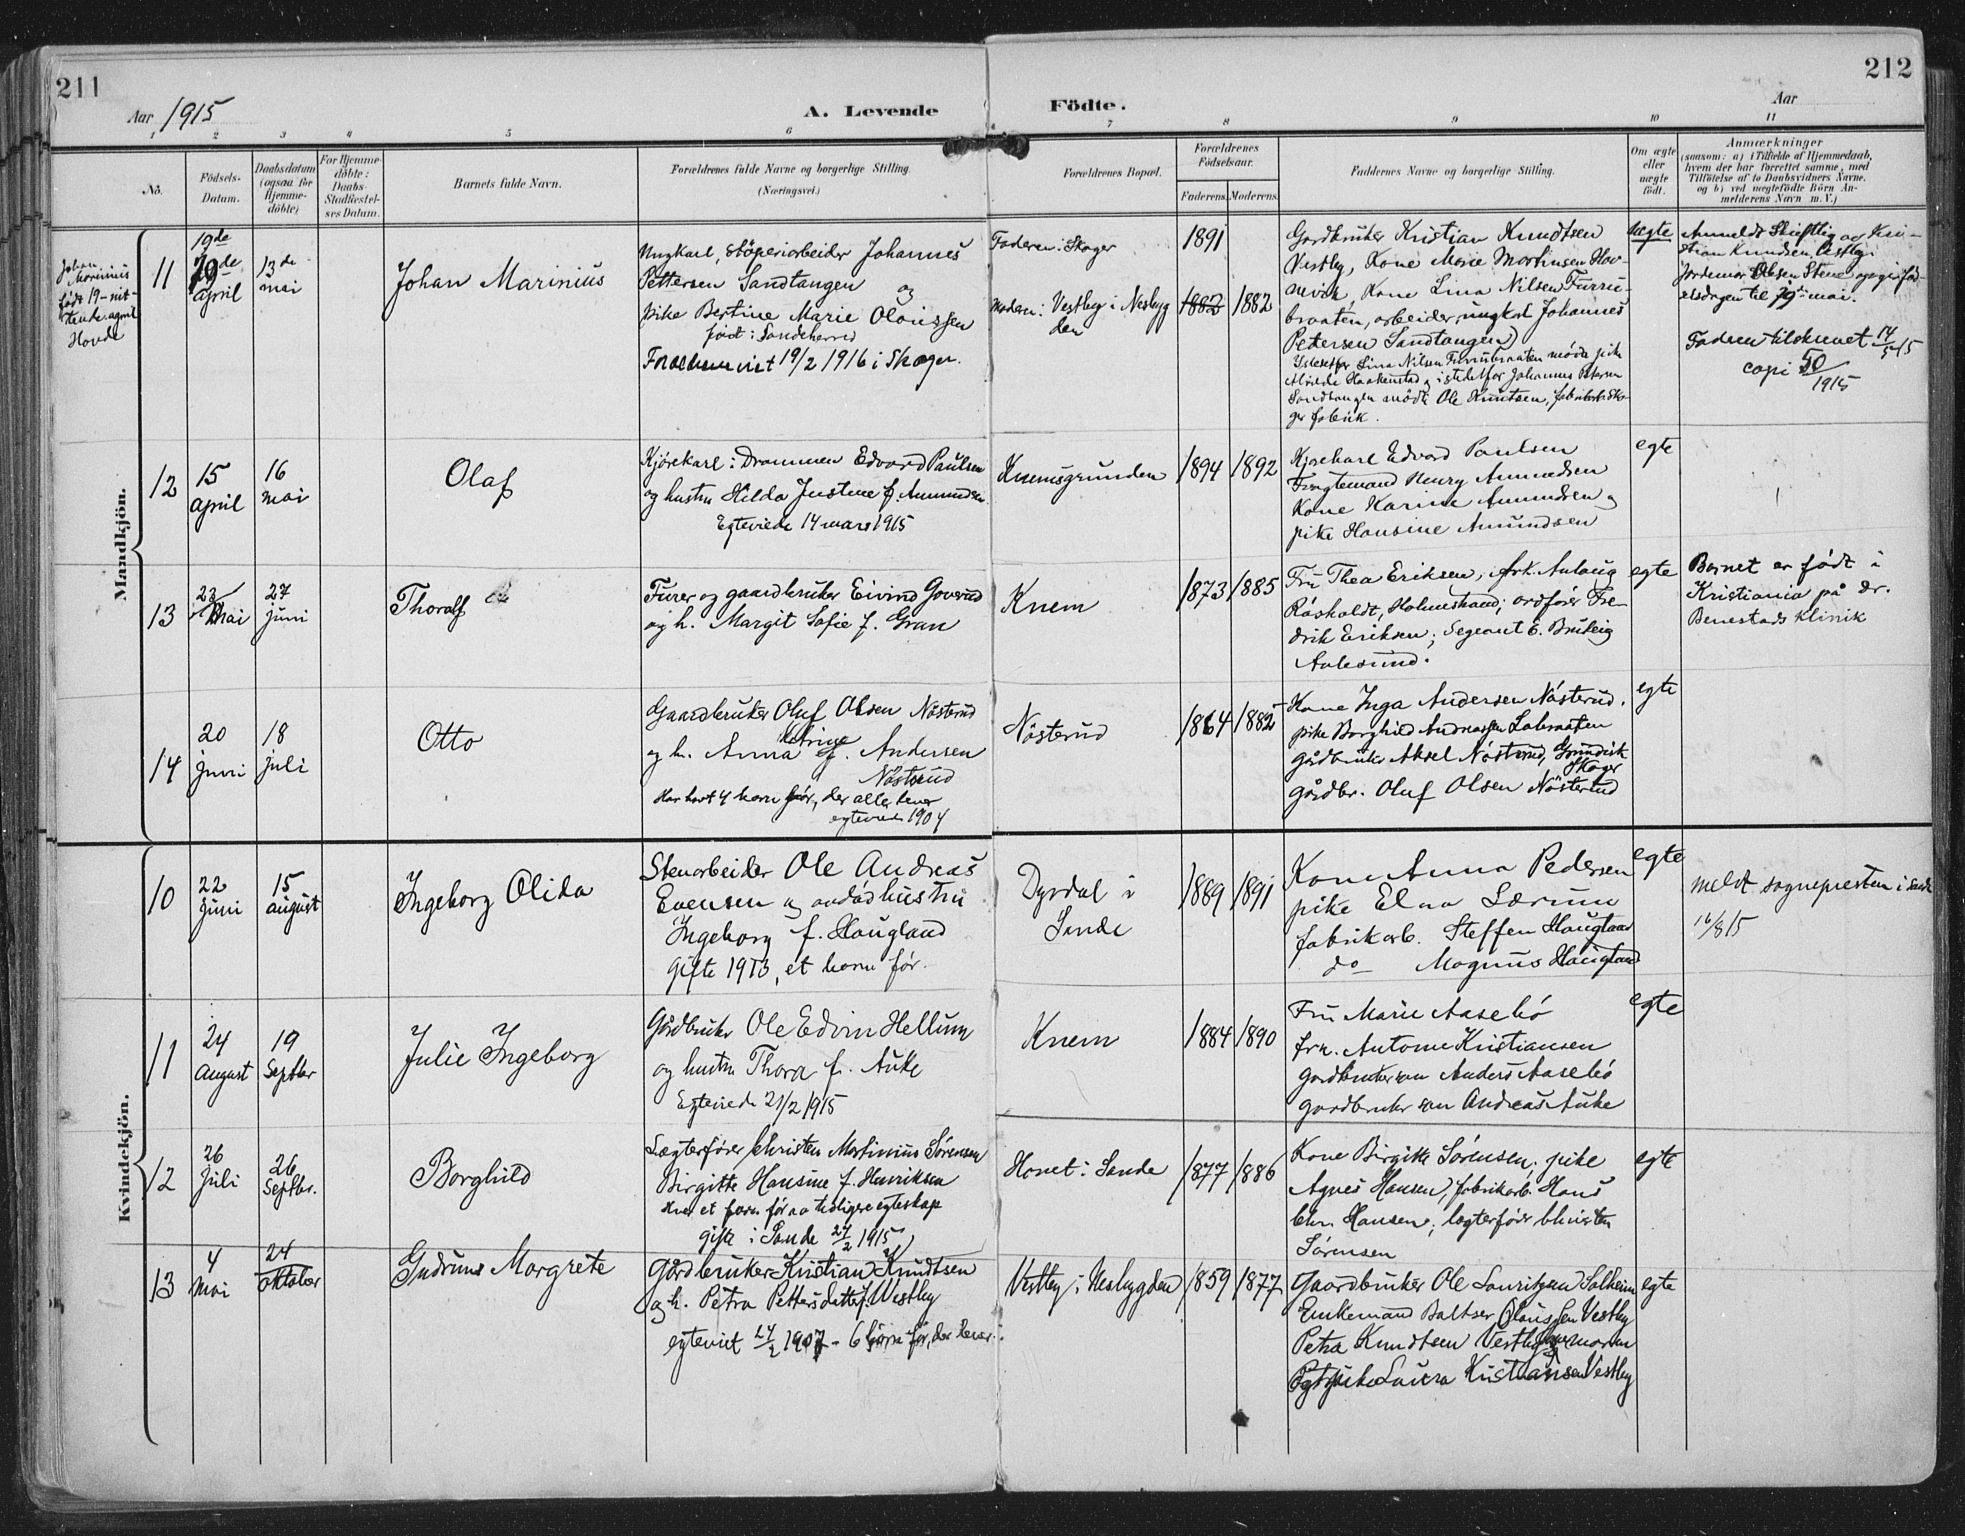 211
212
Aar 1915
A. Levende
Födte.
Aar
1 2 3 4 5 6
6 7 8 9 10 11
No.
Födsels-
Datum.
Daabsdatum
(ogsaa for
Hjemme-
döbte)
For Hjemme-
döbte:
Daabs-
Stadfæstel-
ses Datum.
Barnets fulde Navn.
Forældrenes fulde Navne og borgerlige Stilling.
(Næringsvei.)
Forældrenes Bopæl.
Forældrenes
Födselsaar.
Faderens.
Moderens.
Faddernes Navne og borgerlige Stilling.
Om ægte
eller
uægte
födt.
Anmærkninger
(saasom: a) i Tilfælde af Hjemmedaab,
hvem der har forrettet samme, med
Tilföielse af to Daabsvidners Navne,
og b) ved uægtefödte Börn An-
melderens Navn m. V.)
Mandkjön.
Johan
Marinius
født 19-nit-
tende april
Hovde
11
19de
19de
april
13de
mai
Johan Marinius
Ungkarl, støperiarbeider Johannes
Pettersen Sandtangen
og
pike Bertine Marie Olaussen
født i Sandeherred
Forældrene viet 19/2 1916 i Skoger.
Faderen: Skoger
Moderen: Vestby i Nesbyg
den
1891
1882 1882
Gardbruker Kristian Knudtsen
Vestby, Kone Marie Martinsen Hav-
nevik, Kone Lina Nilsen Furru-
braaten, arbeider, ungkarl Johannes
Pettersen Sandtangen
Istedetfor Lina Nilsen Furrubraaten møtte pike
Haakenstad og istedetfor Johannes Petersen
Sandtangen mødte Ole Knutsen, fabrikarb. Sko-
ger fabrik.
uægte
Anmeldt skriftlig av Kri-
stian Knudsen Vestby.
Jordemor Olsen Stene opgir fød-
selsdagen til 19de mai.
Faderen tilskrevet 14/5 15
copi 50/1915
12
15
april
16
mai
Olaf
Kjørekarl i Drammen Edvard Paulsen
og hustru Hilda Justine f. Amundsen
Egteviede 14 mars 1915
Knemsgrunden
1894 1892
Kjørekarl Edvard Paulsen
Fragtemand Henry Amundsen
Kone Karine Amundsen og
pike Hansine Amundsen
egte
13
23
Mai
27
juni
Thoralf
Furer og gaardbruker Eivind Goverud
og h. Margit Sofie f. Gran
Knem
1873 1885
Fru Thea Eriksen, frk. Aulaug
Råsholdt, Holmestrand; ordfører Fre-
drik Eriksen; Segeant E. Breivig
Aalesund.
egte
Barnet er født i
Kristiania på dr.
Benestads klinik
14
20
juni
18
juli
Otto
Gaardbruker Oluf Olsen Nösterud
og h. Anna Katrine f. Andersen
Nösterud
Har havt 4 barn før, der alle lever
egteviede 1904
Nösterud
1864 1882
Kone Inga Andersen Nösterud.
pike Borghild Andreassen Løbraaten
gårdbruker Aksel Nösterud, Grundvik
Skoger
gårdbr. Oluf Olsen Nösterud
egte
Kvindekjön.
10
22
juni
15
august
Ingeborg Olida
Stenarbeider Ole Andreas
Evensen og avdød hustru
Ingeborg f. Haugland
Gifte 1913, et barn før.
Dyrdal i
Sande
1889 1891
Kone Anna Pedersen
pike Elna Lærum
fabrikarb. Steffen Haugland
do Magnus Haugland
egte
Meldt sognepresten i Sande
16/8 15
11
24
August
19
Septbr
Julie Ingeborg
Gårdbruker Ole Edvin Hellum
og hustru Thora f. Auke
Egteviede 21/2 1915
Knem
1884 1890
Fru Marie Aasebö
frk. Antonie Kristiansen
gardbrukersøn Anders Aasebö
gardbruker søn Andreas Auke
egte
12
26
Juli
26
Septbr.
Borghild
Lægterfører Christen Martinius Sörensen
Birgitte Hansine f. Henriksen
Hver et barn før av tidligere egteskap
gifte i Sande 27/2 1915
Hanet i Sande
1877 1886
Kone Birgitte Sörensen; pike
Agnes Hansen, fabrikarb. Hans
Chr. Hansen; lægterfører Christen
Sörensen
egte
13
4
Mai
24
oktober
Gudrun Margrete
Gårdbruker Kristian Knudtsen
og h. Petra Pettersdatter Vestby
egteviet 24/2 1907 - 6 børn før, der lever.
Vestby i Nesbygden
1859 1877
Gaardbruker Ole Lauritzen Solheim
Enkemand Baltser Olaussen Vestby
Petra Knudtsen Vestby, moren
pike Laura Kristiansen Vestby
egte